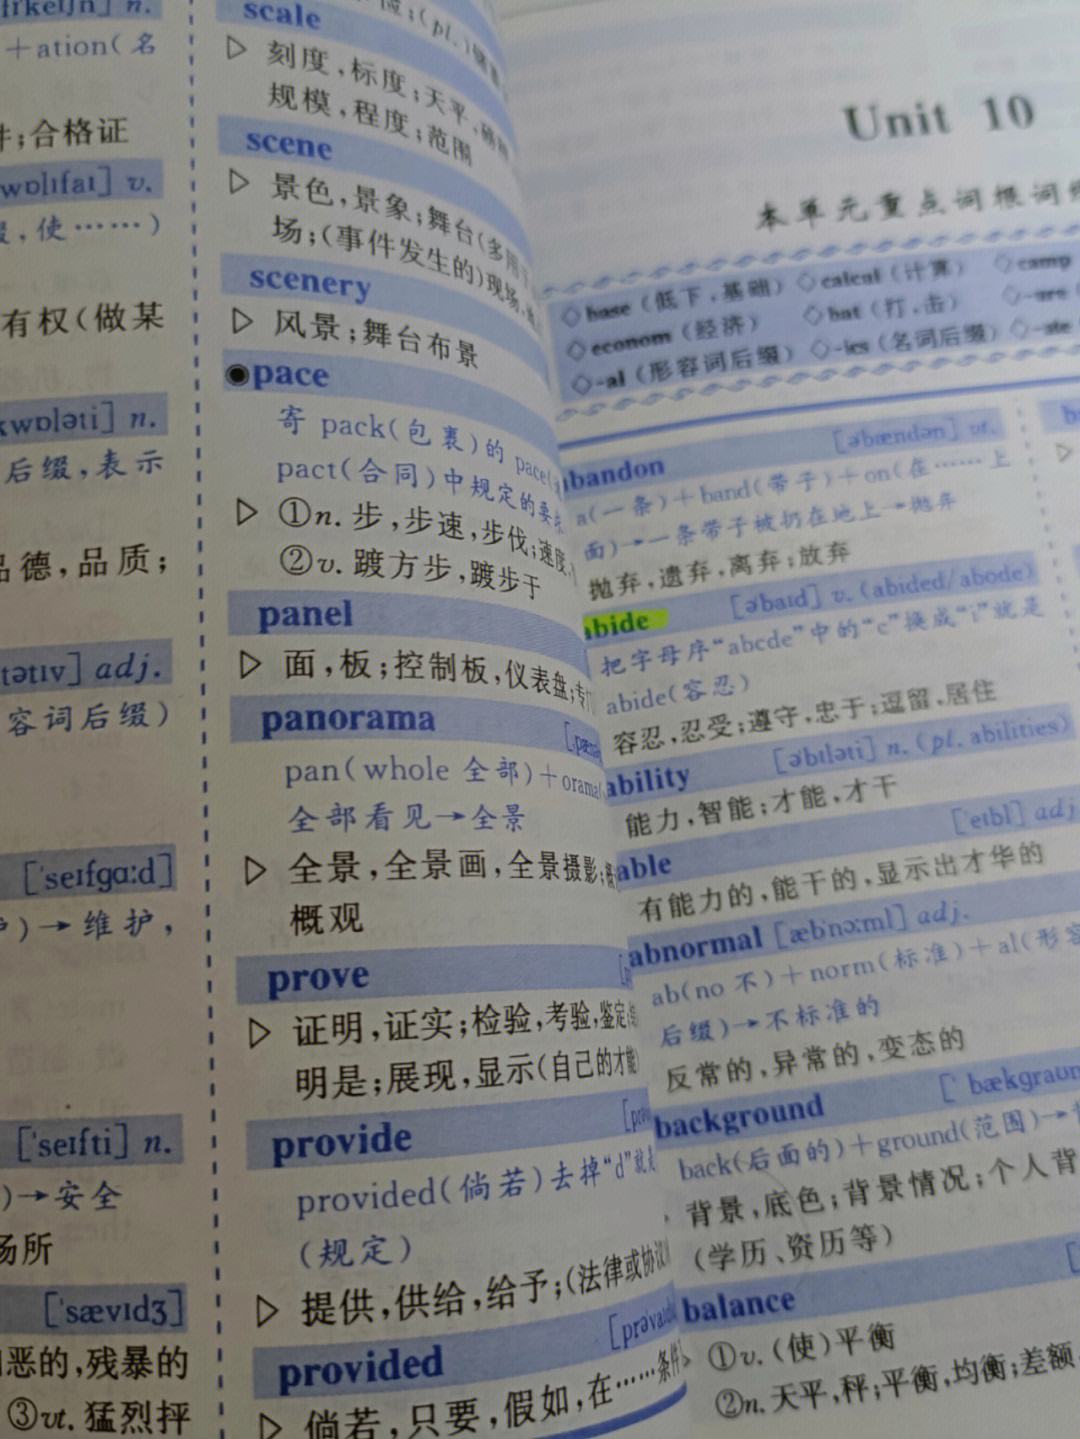 n.
+ation(名
;合格证
wɒlɪfaɪ] v.
,使……)
有权(做某
kwɒləti] n.
后缀,表示
品德,品质;
tətɪv] adj.
容词后缀)
['seɪfgɑ:d]
)→维护,
['seɪfti] n.
)→安全
场所
['sævɪdʒ]
恶的,残暴的
③vt.猛烈抨
(pl.)
scale
▷ 刻度,标度;天平,
规模,程度;范围
scene
▷ 景色,景象;舞台(多用
场;(事件发生的)现场,
scenery
▷ 风景;舞台布景
◉pace
寄 pack(包裹)的 pace(
pact(合同)中规定的要求
▷ ①n. 步,步速,步伐;速度,
②v. 踱方步,踱步于
panel
▷ 面,板;控制板,仪表盘;专
panorama
pan(whole 全部)+orama(
全部看见→全景
▷ 全景,全景画,全景摄影;
概观
prove
▷ 证明,证实;检验,考验,鉴定;
明是;展现,显示(自己的才能
provide
provided(倘若)去掉“d”就是
(规定)
▷ 提供,供给,给予;(法律或协议
provided
▷ 倘若,只要,假如,在……条件
Unit 10
本单元重点词根词
◇base(低下,基础) ◇calcul(计算) ◇camp
◇econom(经济) ◇bat(打,击)
◇-al(形容词后缀) ◇-ics(名词后缀) ◇-ate
abandon [əbændən] vt.
a(一条)+band(带子)+on(在……上
面)→一条带子被扔在地上→抛弃
抛弃,遗弃,离弃;放弃
abide [əbaɪd] v.(abided/abode)
把字母序“abcde”中的“c”换成“i”就是
abide(容忍)
容忍,忍受;遵守,忠于;逗留,居住
ability [ə'bɪləti] n.(pl. abilities)
能力,智能;才能,才干
able ['eɪbl] adj
有能力的,能干的,显示出才华的
abnormal [æb'nɔ:ml] adj.
ab(no 不)+norm(标准)+al(形容
后缀)→不标准的
反常的,异常的,变态的
background ['bækgraʊn
back(后面的)+ground(范围)→
背景,底色;背景情况;个人背
(学历、资历等)
balance
①v.(使)平衡
②n.天平,秤;平衡,均衡;差额